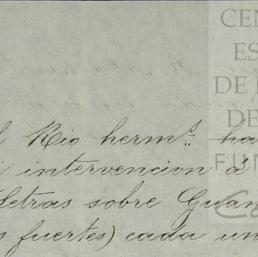 CEN
ES
DE
DE
FUN
l Rio herms. ha
i intervencion á
Letras sobre Guan
s fuertes) cada un